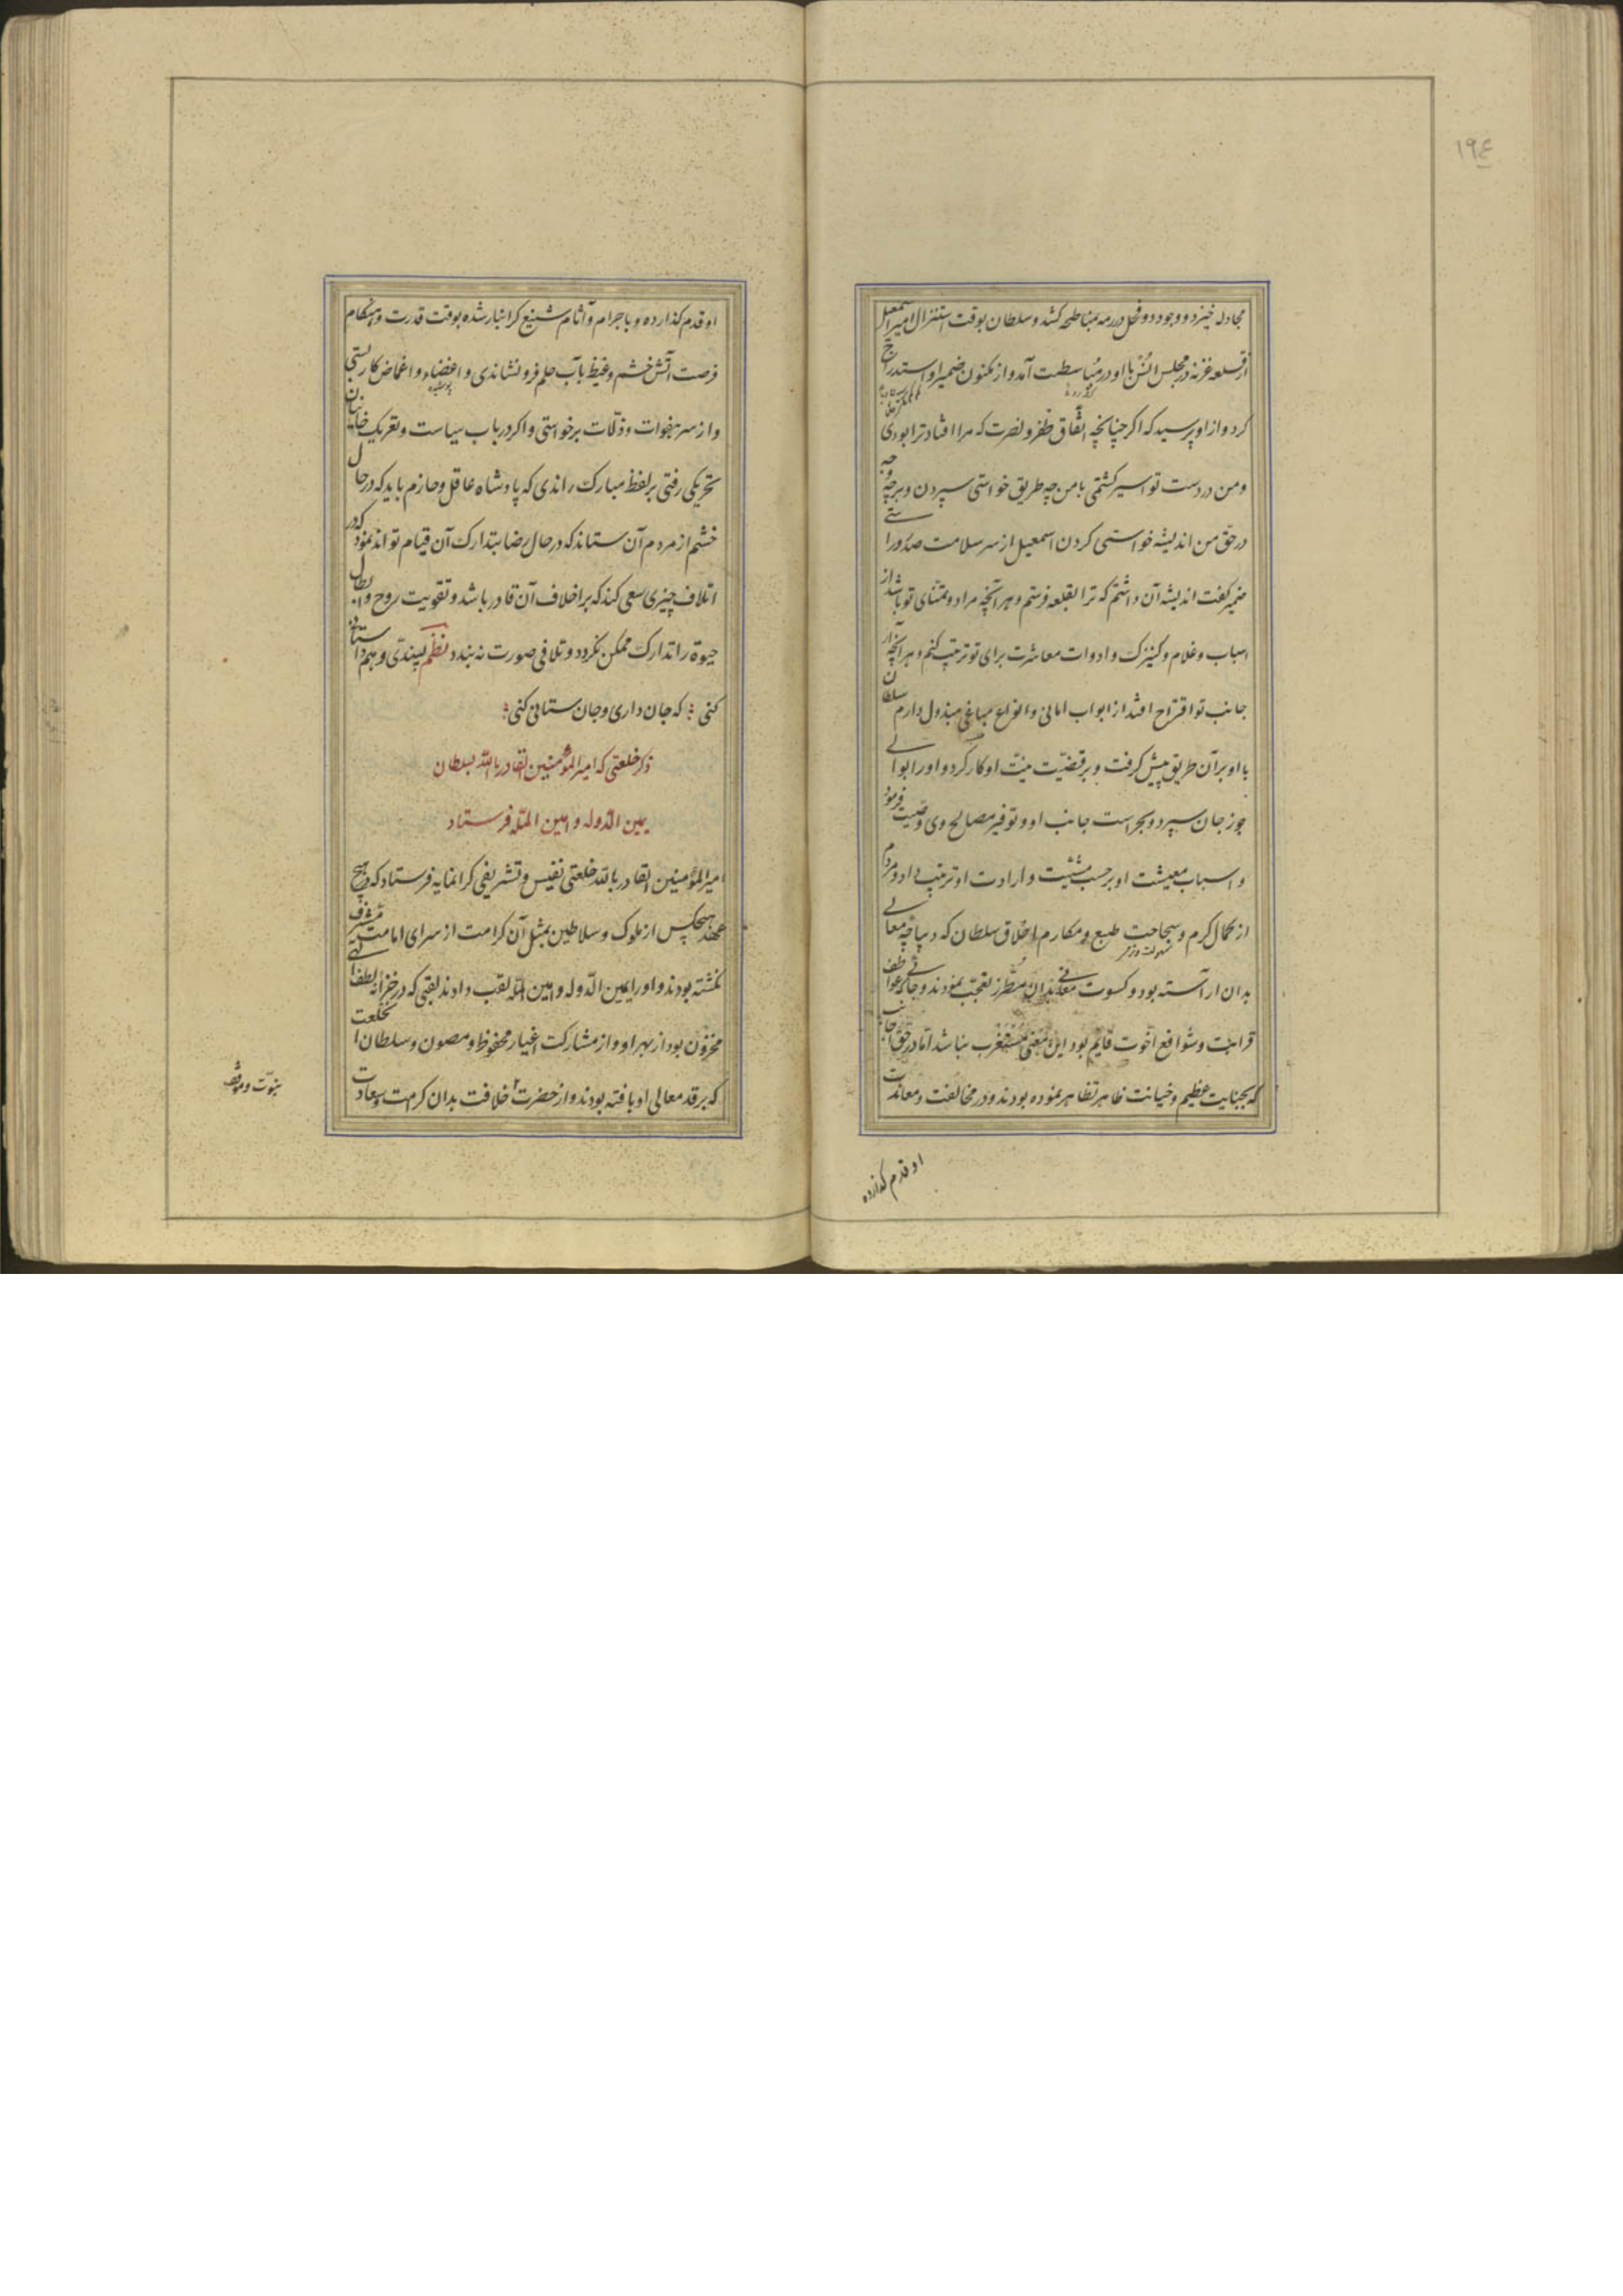 ۱۹٤
مجادله خیزد و وجود دو فحل در رمه بمناطحه کشد و سلطان بوقت استنزال امیر اسمعیل
از قلعه غزنه در مجلس انس با او در مباسطت آمد و از مکنون ضمیر او استدراج
کرد و از او پرسید که اگر چنانچه اتفاق ظفر و نصرت که مرا افتاد ترا بودی
و من در دست تو اسیر گشتمی با من چه طریق خواستی سپردن و بر چه وجه
در حق من اندیشه خواستی کردن اسمعیل از سر سلامت صدر را
ضمیر گفت اندیشه آن داشتم که ترا بقلعه فرستم و هر آنچه مراد و تمنای تو باشد از
اسباب و غلام و کنیزک و ادوات معاشرت برای تو ترتیب کنم و هر آنچه از
جانب تو اقتراح افتد از ابواب امانی و انواع مباغی مبذول دارم سلطان
با او بر آن طریق پیش گرفت و بر قضیت نیت او کار کرد و او را بوالی
جوزجان سپرد و بحراست جانب او و توفیر مصالح وی وصیت فرمود
و اسباب معیشت او بر حسب مشیت و ارادت او ترتیب داد و مردم
از کمال کرم و سجاحت طبع و مکارم اخلاق سلطان که دیباچه معالی
بدان آراسته بود و کسوت معانی بدان مطرز تعجب نمودند و جائی که عواطف
قرابت و شوافع اخوت قایم بود این معنی مستغرب نباشد اما در حق جانب
که بجنایت عظیم و خیانت ظاهر تظاهر نموده بودند و در مخالفت و معاندت
او قدم گذارده
او قدم گذارده و باجرام و آثام شنیع گرانبار شده بوقت قدرت و هنگام
فرصت آتش خشم و غیظ بآب حلم فرو نشاندی و اغضاء و اغماض کار بستی
و از سر هفوات و ذلات برخواستی و اگر در باب سیاست و تعریک خائنان
تحریکی رفتی بر لفظ مبارک راندی که پادشاه عاقل و حازم باید که در حال
خشم از مردم آن ستاند که در حال رضا بتدارک آن قیام تواند نمود که در
اتلاف چیزی سعی کند که بر اخلاف آن قادر باشد و تقویت روح و ابطال
حیوة را تدارک ممکن نگردد و تلافی صورت نه بندد نظم پسندی و هم داستانی
کنی ؛ که جان داری و جان ستانی کنی ؛
ذکر خلعتی که امیر المؤمنین القادر بالله بسلطان
یمین الدوله و امین المله فرستاد
امیر المؤمنین القادر بالله خلعتی نفیس و تشریفی گرانمایه فرستاد که در هیچ
عهد هیچکس از ملوک و سلاطین بمثل آن کرامت از سرای امامت مشرف
نگشته بودند و او را یمین الدوله و امین المله لقب دادند لقبی که در خزانه لطف الهی
مخزون بود از بهر او و از مشارکت اغیار محفوظ و مصون و سلطان آن خلعت
که بر قد معالی او بافته بودند و از حضرت خلافت بدان کرامت و سعادت
بنبوت و موقف